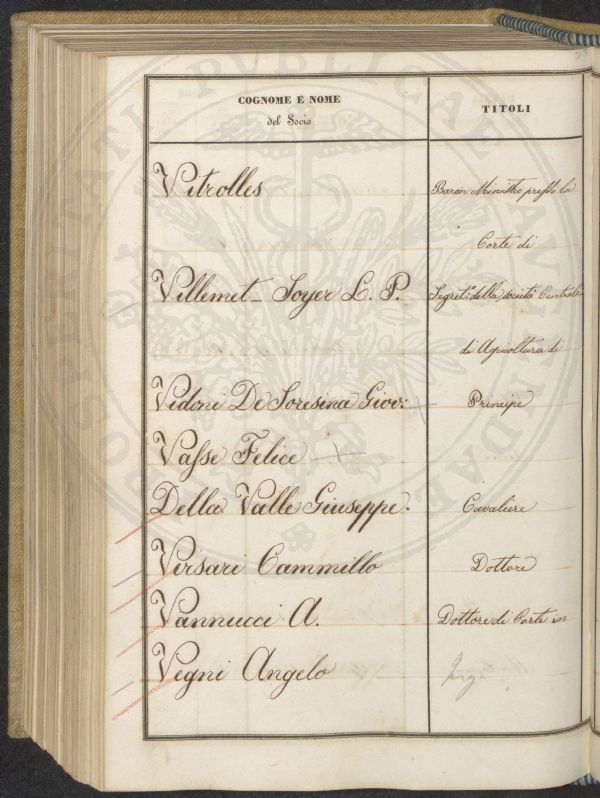 COGNOME E NOME
del Socio
TITOLI
Vitrolles
Baron Ministro presso la
Corte di
Villemet_ Soyer L. P.
Segret.o della società Centrale
di Agricoltura di
Vidoni De Soresina Giov:
Principe
Vasse Felice
Della Valle Giuseppe.
Cavaliere
Versari Cammillo
Dottore
Vannucci A.
Dottore di Corte in
Vegni Angelo
Ing
PROSPERITATI PUBLICAE AUGENDAE